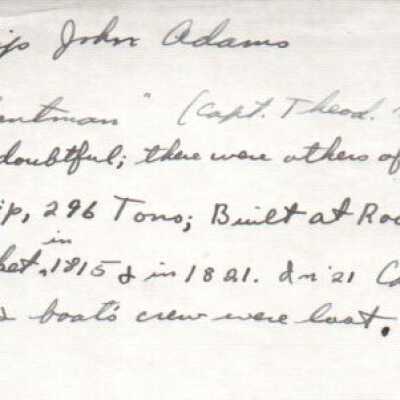 John Adams
" (Capt. Theod.
doubtful; there were others of
296 Tons; Built at
in
1815 & in 1821. In '21
boat's crew were lost.